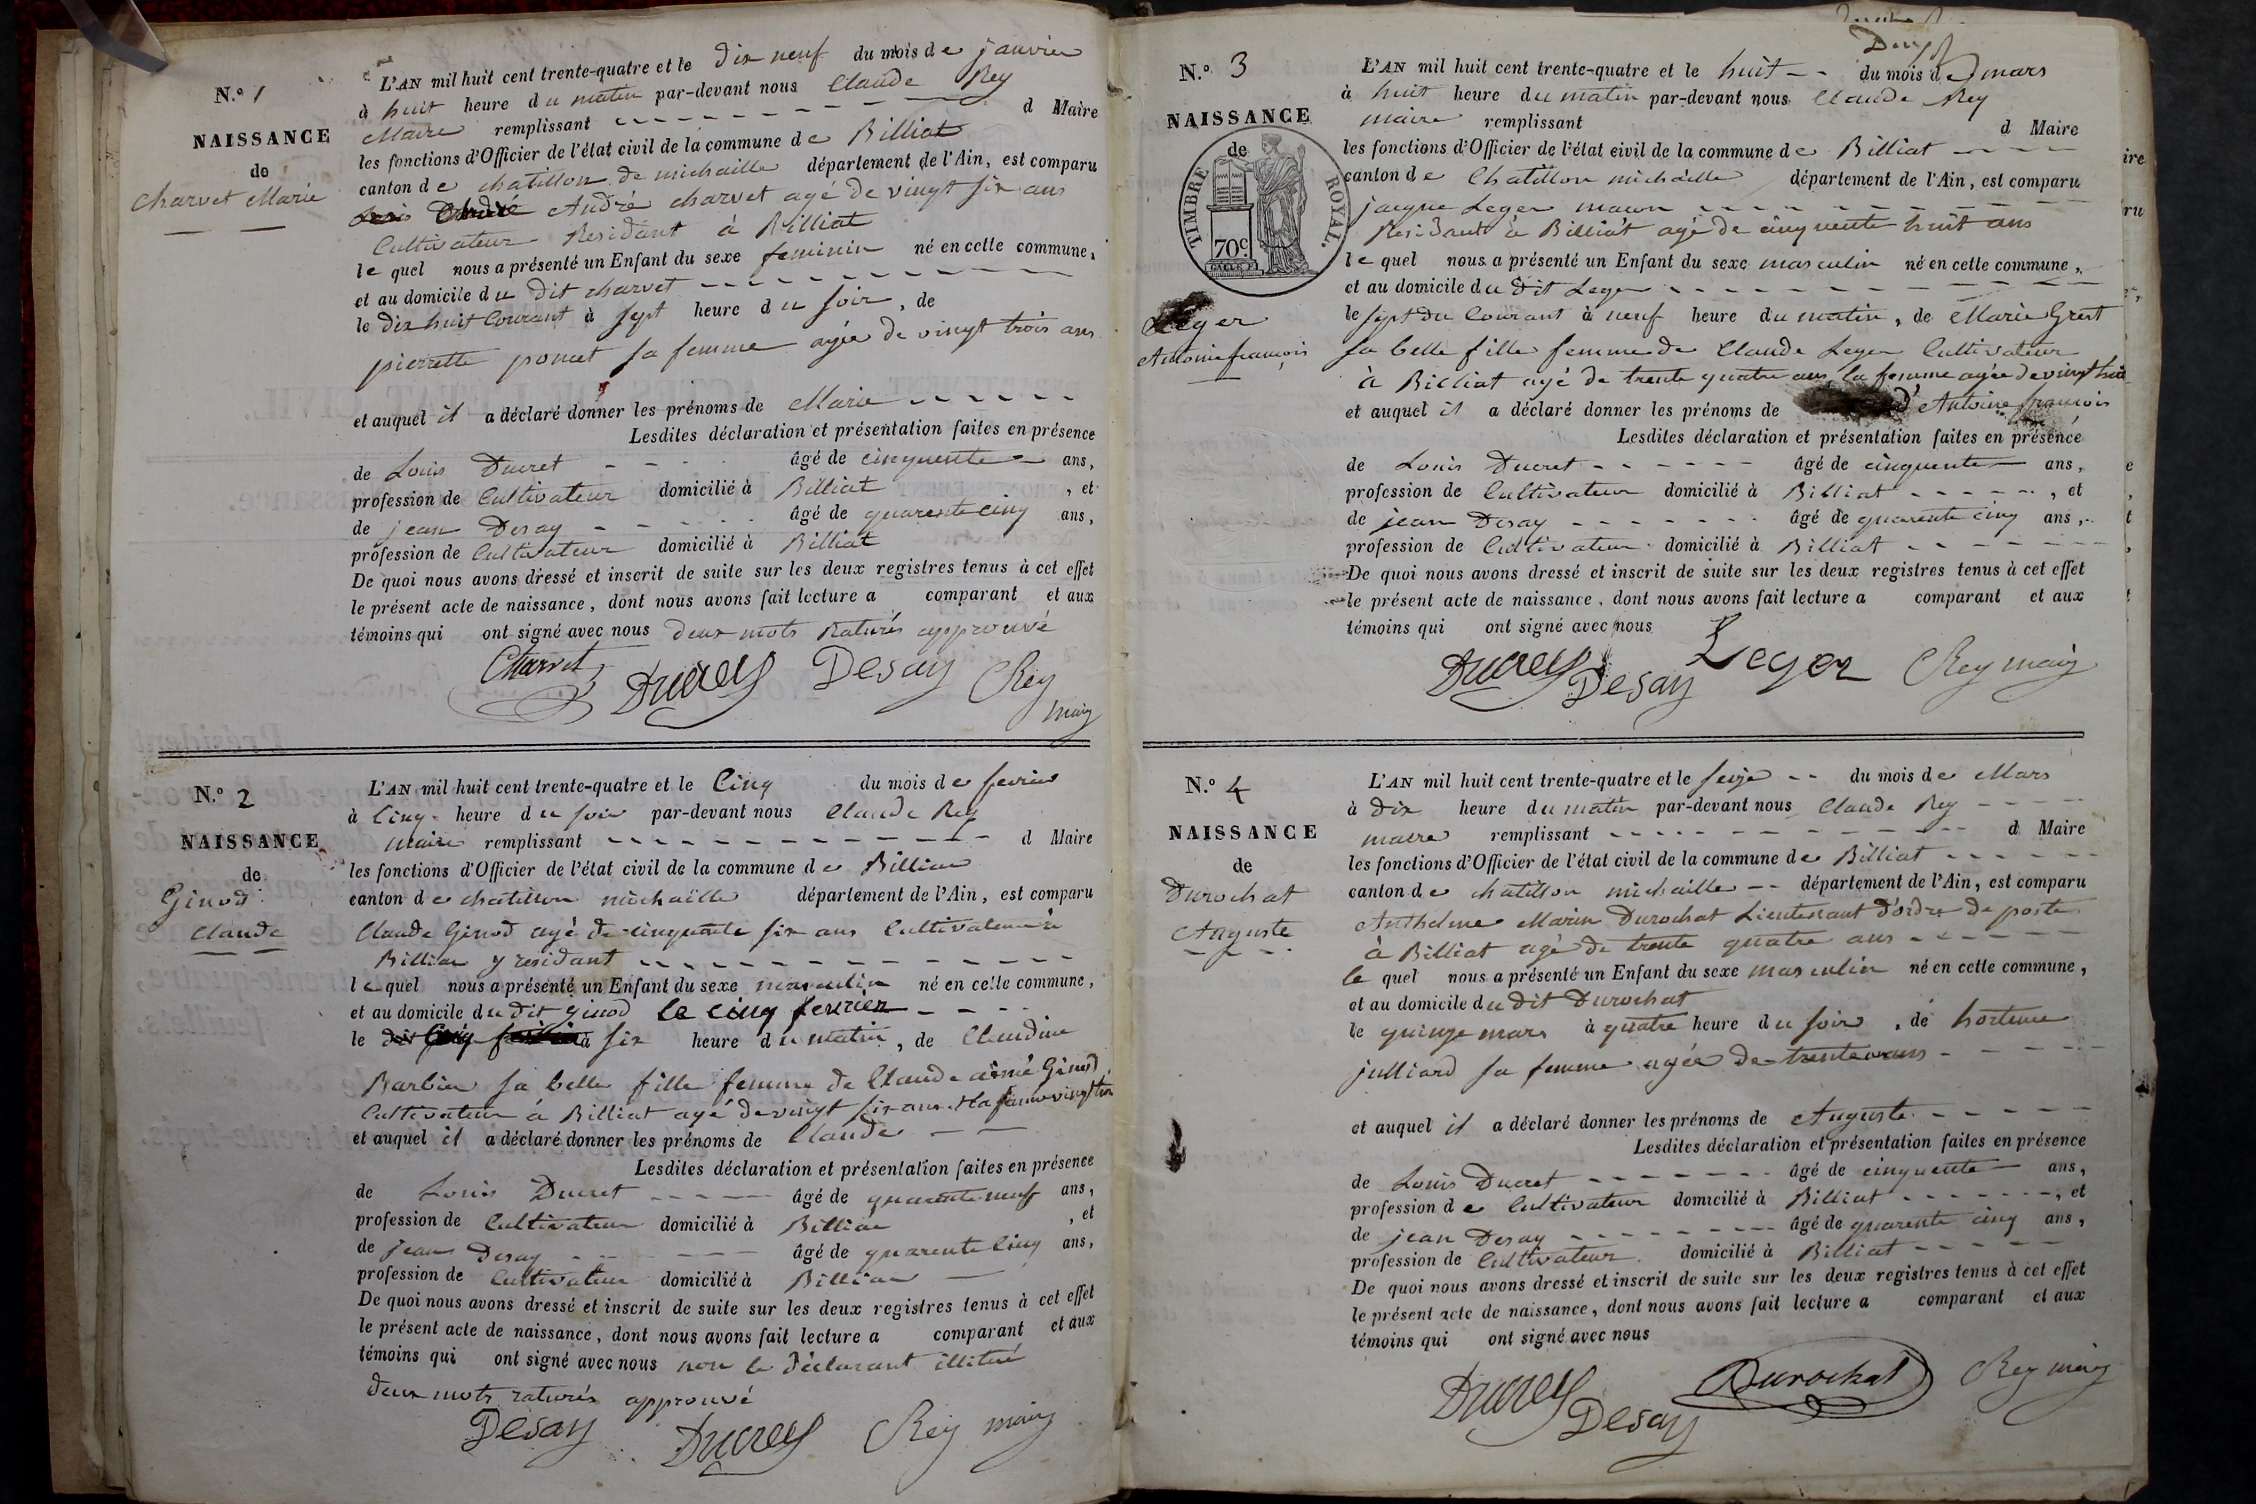 N.º 1
NAISSANCE
de
Charvet Marie
L'AN mil huit cent trente-quatre et le dix neuf du mois de janvier
à huit heure du matin par-devant nous Claude Rey
Maire remplissant d Maire
les fonctions d'Officier de l'état civil de la commune de Billiat
canton de chatillon de michaille département de l'Ain, est comparu
André charvet agé de vingt six ans
Cultivateur Residant à Billiat
le quel nous a présenté un Enfant du sexe feminin né en cette commune,
et au domicile du dit charvet
le dix huit Courant à sept heure du soir, de
pierrette poncet sa femme agée de vingt trois ans
et auquel il a déclaré donner les prénoms de Marie
Lesdites déclaration et présentation faites en présence
de Louis Ducret âgé de cinquente ans,
profession de Cultivateur domicilié à Billiat, et
de jean Desay âgé de quarente cinq ans,
profession de Cultivateur domicilié à Billiat
De quoi nous avons dressé et inscrit de suite sur les deux registres tenus à cet effet
le présent acte de naissance, dont nous avons fait lecture a comparant et aux
témoins qui ont signé avec nous deux mots Raturés approuvé
Charvet Ducrey Desay Rey
maire
N.º 2
NAISSANCE
de
Ginod
Claude
L'AN mil huit cent trente-quatre et le Cinq du mois de fevrier
à Cinq heure du soir par-devant nous Claude Rey
maire remplissant d Maire
les fonctions d'Officier de l'état civil de la commune de Billiat
canton de chatillon michaille département de l'Ain, est comparu
Claude Ginod agé de cinquente six ans Cultivateur à
Billiat y residant
le quel nous a présenté un Enfant du sexe masculin né en cette commune,
et au domicile du dit ginod le cinq fevrier
le à six heure du matin, de Claudine
Barbier sa belle fille femme de Claude aimé Ginod
Cultivateur à Billiat agé de vingt six ans et la femme vingt
et auquel il a déclaré donner les prénoms de Claude
Lesdites déclaration et présentation faites en présence
de Louis Ducret âgé de quarente neuf ans,
profession de Cultivateur domicilié à Billiat, et
de jean Desay âgé de quarente Cinq ans,
profession de Cultivateur domicilié à Billiat
De quoi nous avons dressé et inscrit de suite sur les deux registres tenus à cet effet
le présent acte de naissance, dont nous avons fait lecture a comparant et aux
témoins qui ont signé avec nous non le déclarant illitéré
deux mots raturés approuvé
Desay Ducrey Rey maire
N.º 3
NAISSANCE
de
TIMBRE ROYAL.
70c
Leger
Antoine françois
L'AN mil huit cent trente-quatre et le huit du mois de mars
à huit heure du matin par-devant nous Claude Rey
maire remplissant d Maire
les fonctions d'Officier de l'état civil de la commune de Billiat
canton de Chatillon michaille département de l'Ain, est comparu
jacque Leger macon
Residant à Billiat agé de cinquente huit ans
le quel nous a présenté un Enfant du sexe masculin né en cette commune,
et au domicile du dit Leger
le sept du Courant à neuf heure du matin, de Marie Grest
sa belle fille femme de Claude Leger Cultivateur
à Billiat agé de trente quatre ans la femme agée de vingt huit
et auquel il a déclaré donner les prénoms de d'Antoine françois
Lesdites déclaration et présentation faites en présence
de Louis Ducret âgé de cinquente ans,
profession de Cultivateur domicilié à Billiat, et
de jean Desay âgé de quarente cinq ans,
profession de Cultivateur domicilié à Billiat
De quoi nous avons dressé et inscrit de suite sur les deux registres tenus à cet effet
le présent acte de naissance, dont nous avons fait lecture a comparant et aux
témoins qui ont signé avec nous
Ducrey Desay Leger Rey maire
N.º 4
NAISSANCE
de
Durochat
Auguste
L'AN mil huit cent trente-quatre et le seize du mois de Mars
à dix heure du matin par-devant nous Claude Rey
maire remplissant d Maire
les fonctions d'Officier de l'état civil de la commune de Billiat
canton de chatillon michaille département de l'Ain, est comparu
Anthelme Marin Durochat Lieutenant d'ordre de poste
à Billiat agé de trente quatre ans
le quel nous a présenté un Enfant du sexe masculin né en cette commune,
et au domicile du dit Durochat
le quinze mars à quatre heure du soir, de hortense
julliard sa femme agée de trente ans
et auquel il a déclaré donner les prénoms de Auguste
Lesdites déclaration et présentation faites en présence
de Louis Ducret âgé de cinquente ans,
profession de Cultivateur domicilié à Billiat, et
de jean Desay âgé de quarente cinq ans,
profession de Cultivateur domicilié à Billiat
De quoi nous avons dressé et inscrit de suite sur les deux registres tenus à cet effet
le présent acte de naissance, dont nous avons fait lecture a comparant et aux
témoins qui ont signé avec nous
Ducrey Desay Durochat Rey maire